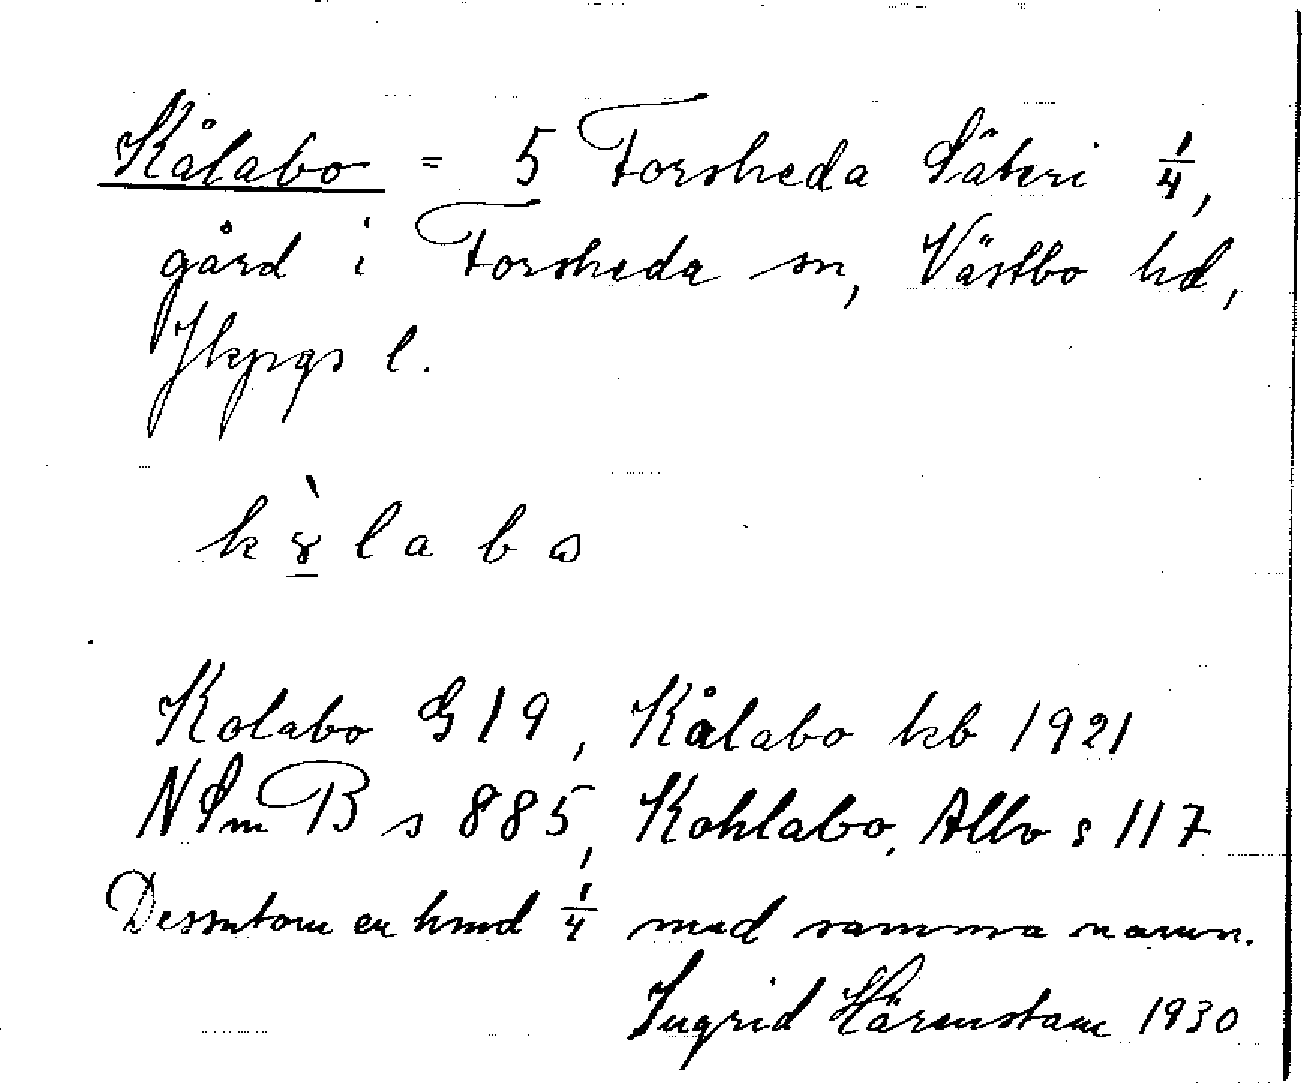 Kålabo = 5 Forsheda Säteri 1/4,
gård i Forsheda sn, Västbo hd,
Jkpgs l.
k 8̀ l a b ω
Kolabo G 19, Kålabo kb 1921
N Sm B s 885, Kohlabo, Allvo s 117
Dessutom en hmd 1/4 med samma namn.
Ingrid Härenstam 1930